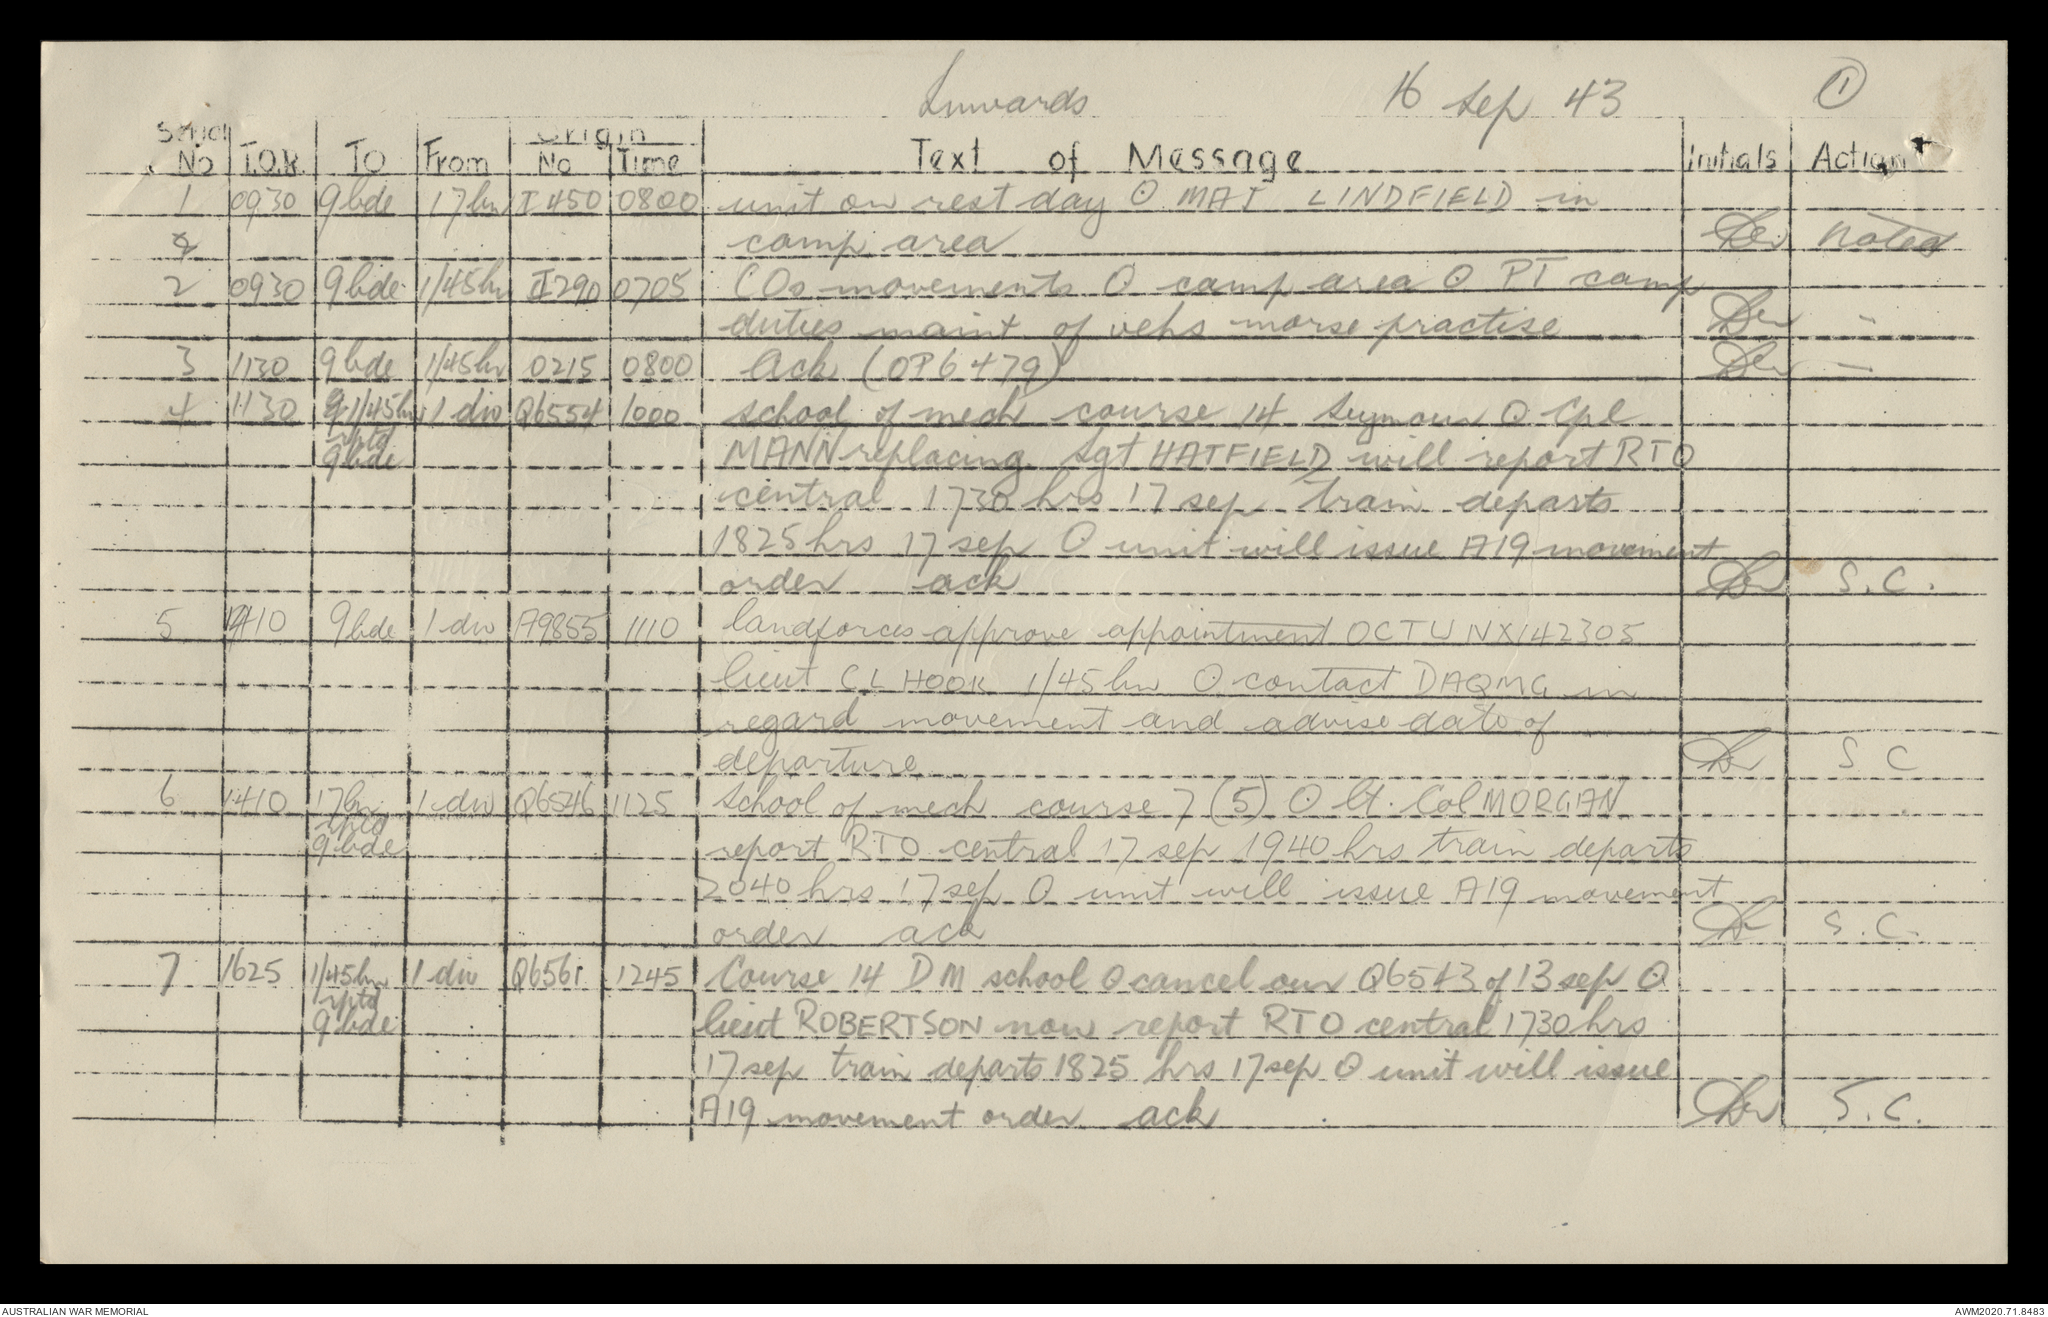 Inwards 16 Sep 43 1
Serial Origin
No T.O.R. TO From No Time Text of Message Initials Action
1 0930 9 bde 17 bn I 450 0800 unit on rest day O MAJ LINDFIELD in
camp area Noted
2 0930 9 bde 1/45 bn I 290 0705 COs movements O camp area O PT camp
duties maint of vehs morse practise -
3 1130 9 bde 1/45 bn 0215 0800 Ack (OP6479) -
4 1130 1/45 bn 1 div Q6554 1000 School of mech course 14 Seymour O Cpl
rptd
9 bde MANN replacing Sgt HATFIELD will report RTO
central 1730 hrs 17 sep train departs
1825 hrs 17 sep O unit will issue A19 movement
order ack S.C.
5 1410 9 bde 1 div A9855 1110 landforces approve appointment OCTU NX142305
lieut C L HOOK 1/45 bn O contact DAQMG in
regard movement and advise date of
departure S C
6 1410 17 bn 1 div Q6546 1125 School of mech course 7 (5) O Lt. Col MORGAN
rptd
9 bde report RTO central 17 sep 1940 hrs train departs
2040 hrs 17 sep O unit will issue A19 movement
order ack S.C.
7 1625 1/45 bn 1 div Q6561 1245 Course 14 DM school O cancel our Q6543 of 13 sep O
rptd
9 bde lieut ROBERTSON now report RTO central 1730 hrs
17 sep train departs 1825 hrs 17 sep O unit will issue
A19 movement order ack S.C.
AUSTRALIAN WAR MEMORIAL AWM2020.71.8483